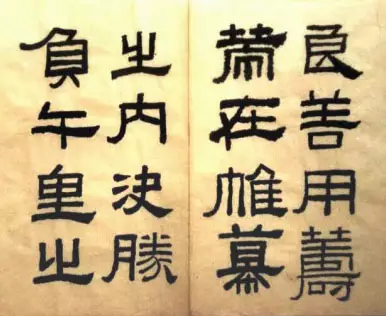 良善用籌
策在帷幕
之内決勝
負午里之